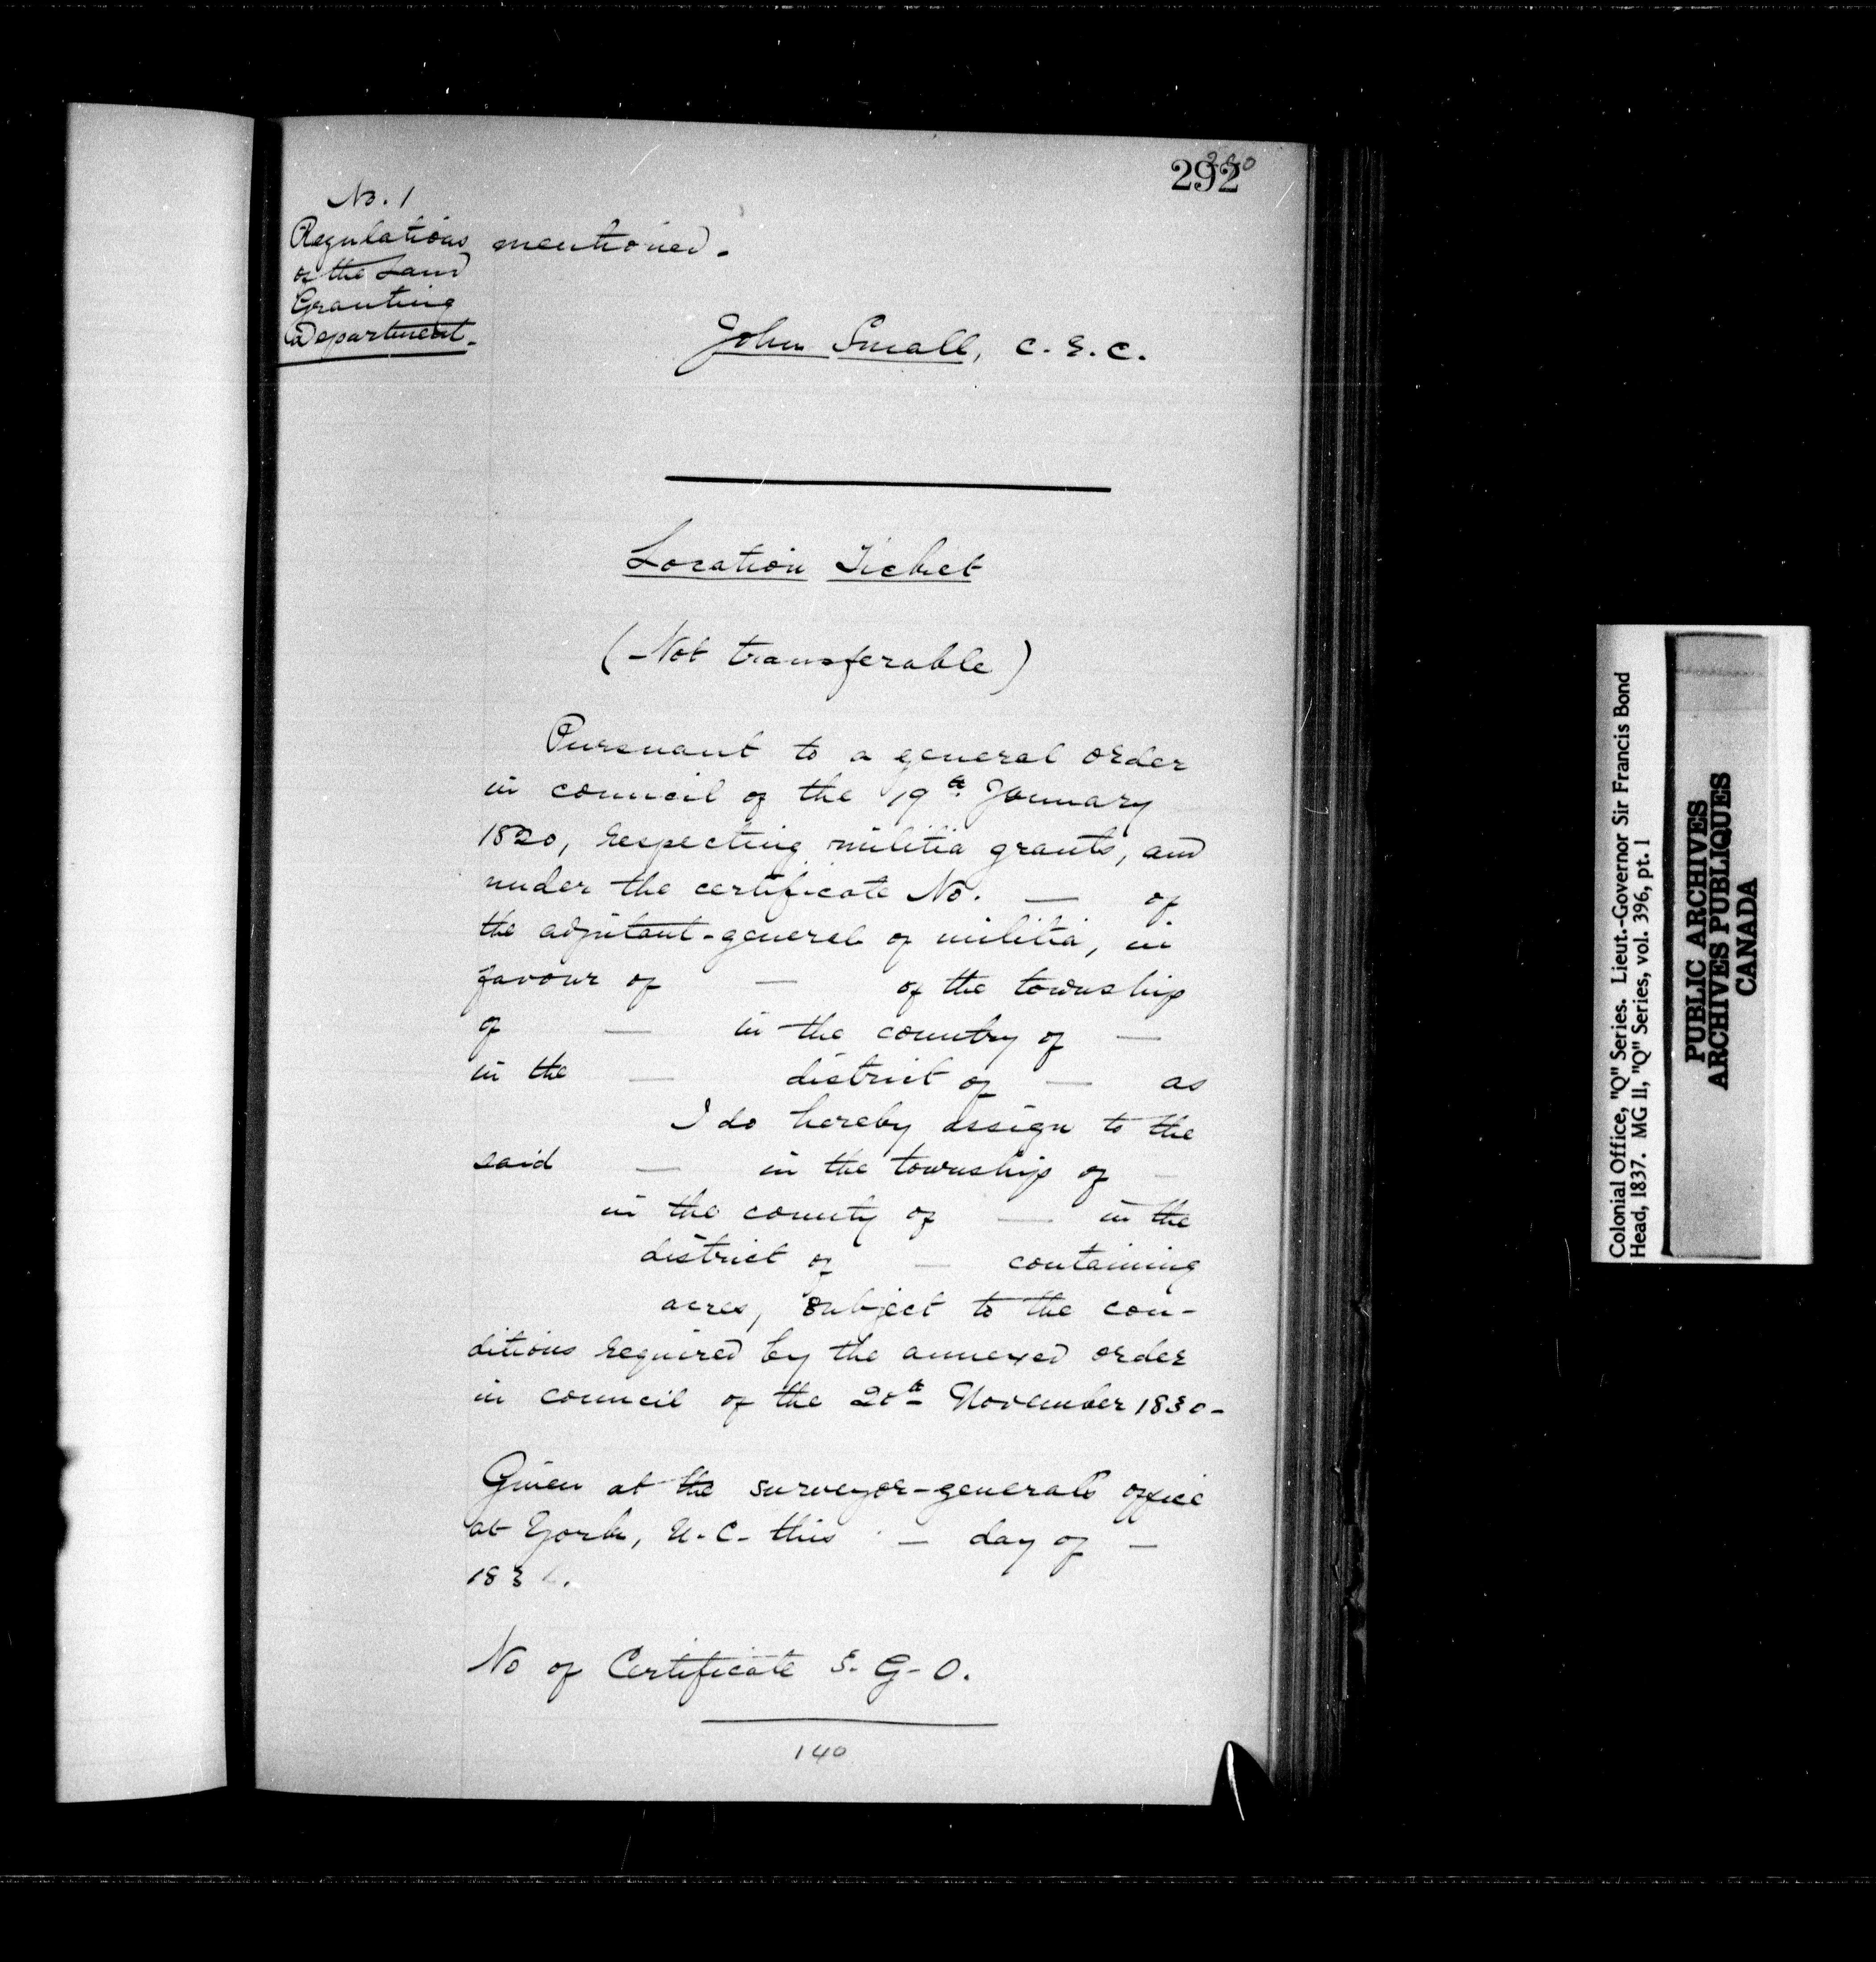 292
No. 1
Regulations
of the Land
Granting
Department.
mentioned.
John Small, C. E. C.
Location Ticket
(Not transferable)
Pursuant to a general order
in council of the 19th January
1820, respecting militia grants, and
under the certificate No. — of
the adjutant-general of militia, in
favour of — of the township
of — in the country of —
in the — district of — as
I do hereby assign to the
said — in the township of —
in the county of — in the
district of — containing
acres, subject to the con-
ditions required by the annexed order
in council of the 20th November 1830-
Given at the surveyor-general's office
at York, U.C. this — day of —
183 .
No of Certificate S. G. O.
140
Colonial Office, "Q" Series. Lieut.-Governor Sir Francis Bond
Head, 1837. MG 11, "Q" Series, vol. 396, pt. 1
PUBLIC ARCHIVES
ARCHIVES PUBLIQUES
CANADA